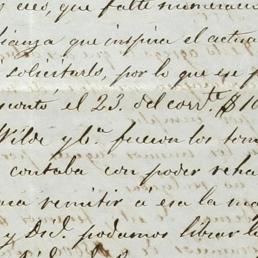 creo, que falte numerario
fianza que inspira el actua
solicitarlo, por lo que se p
contó el 23. del corrte. $10
Wilde y Ca. fueron los tom
contaba con poder reha
para remitir á esa la ma
y Dic. podamos librar la